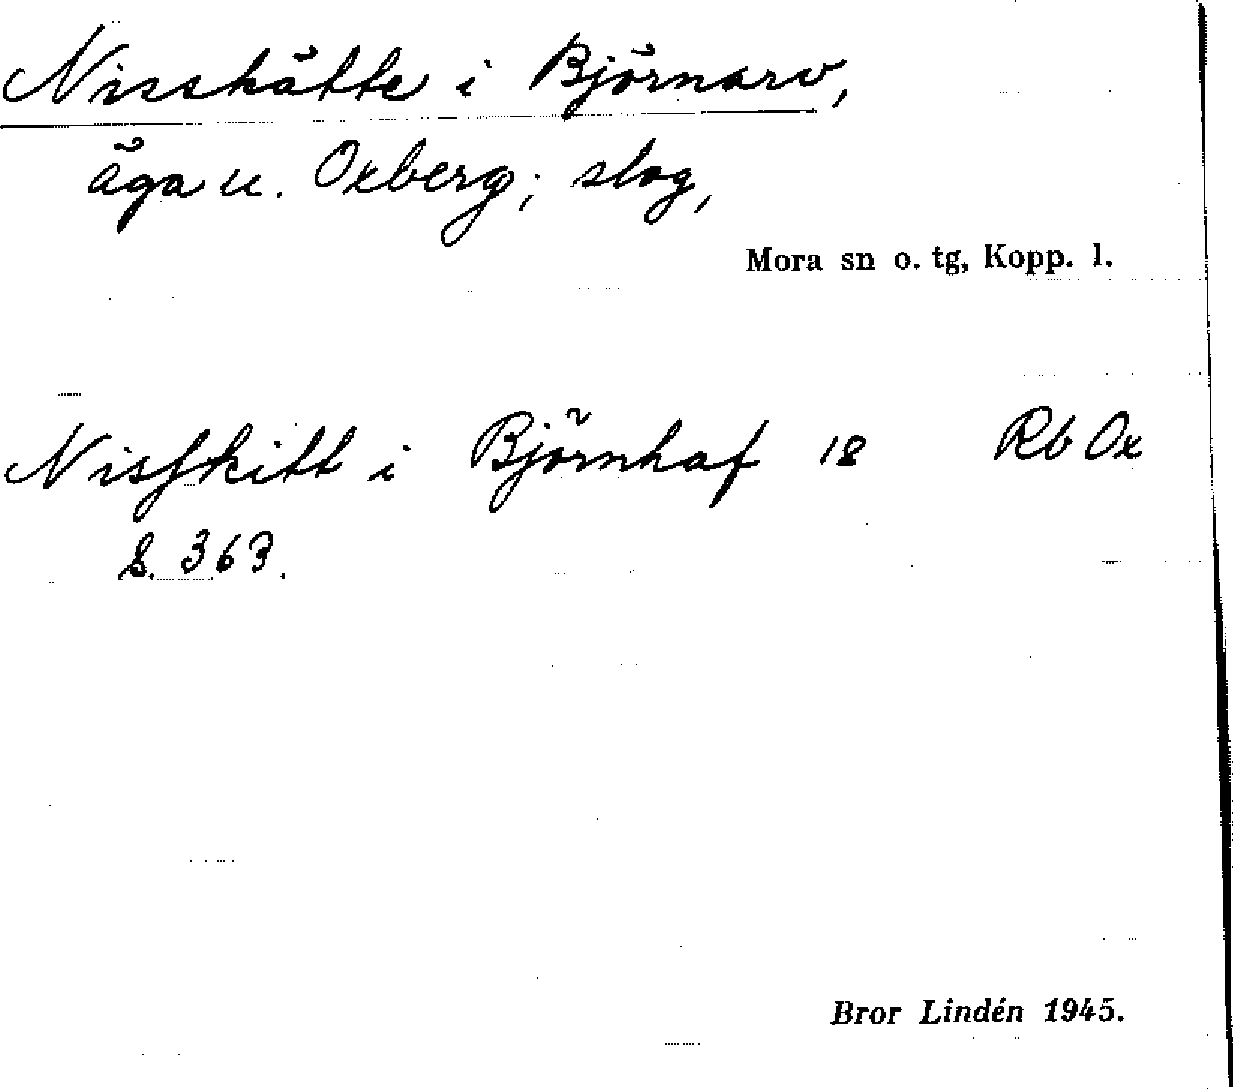 Nisskätte i Björnarv,
äga u. Oxberg; slog,
Mora sn o. tg, Kopp. l.
Nisskitt i Björnhaf 18 Rb Ox
S. 363.
Bror Lindén 1945.